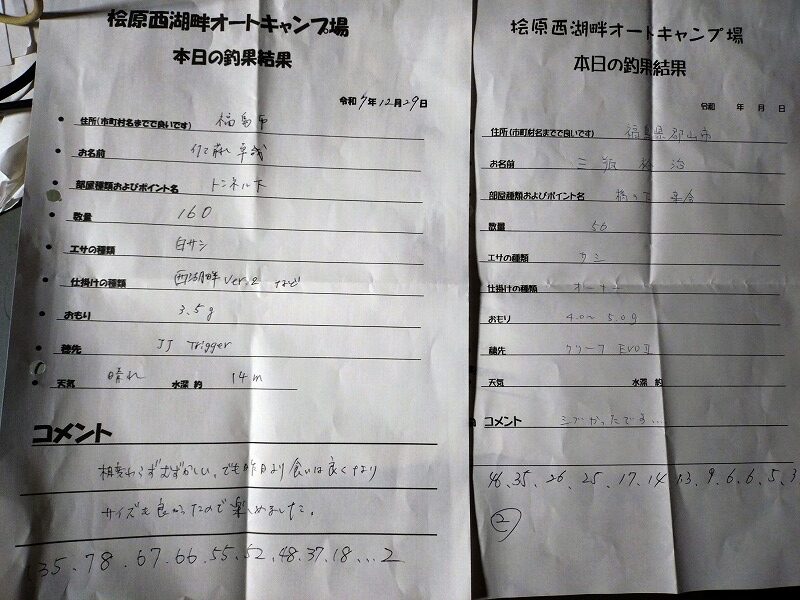 桧原西湖畔オートキャンプ場
本日の釣果結果
令和7年12月29日
住所(市町村名までで良いです) 福島市
お名前 佐藤 卓哉
部屋種類およびポイント名 トンネル下
数量 160
エサの種類 白サシ
仕掛けの種類 西湖畔 Ver.2 など
おもり 3.5g
穂先 JJ Trigger
天気 晴れ 水深 約 14m
コメント
相変わらずむずかしい。でも昨日より食いは良くなり
サイズも良かったので楽しめました。
35.78.67.66.55.52.48.37.18...2
桧原西湖畔オートキャンプ場
本日の釣果結果
令和 年 月 日
住所(市町村名までで良いです) 福島県郡山市
お名前 三瓶 治
部屋種類およびポイント名 橋の下
数量 56
エサの種類
仕掛けの種類 オーナー
おもり 4.0~5.0g
穂先 クリーフ EVOII
天気 水深 約
コメント シブかったでる...
46.35.26.25.17.14.13.9.6.6.5.3
②